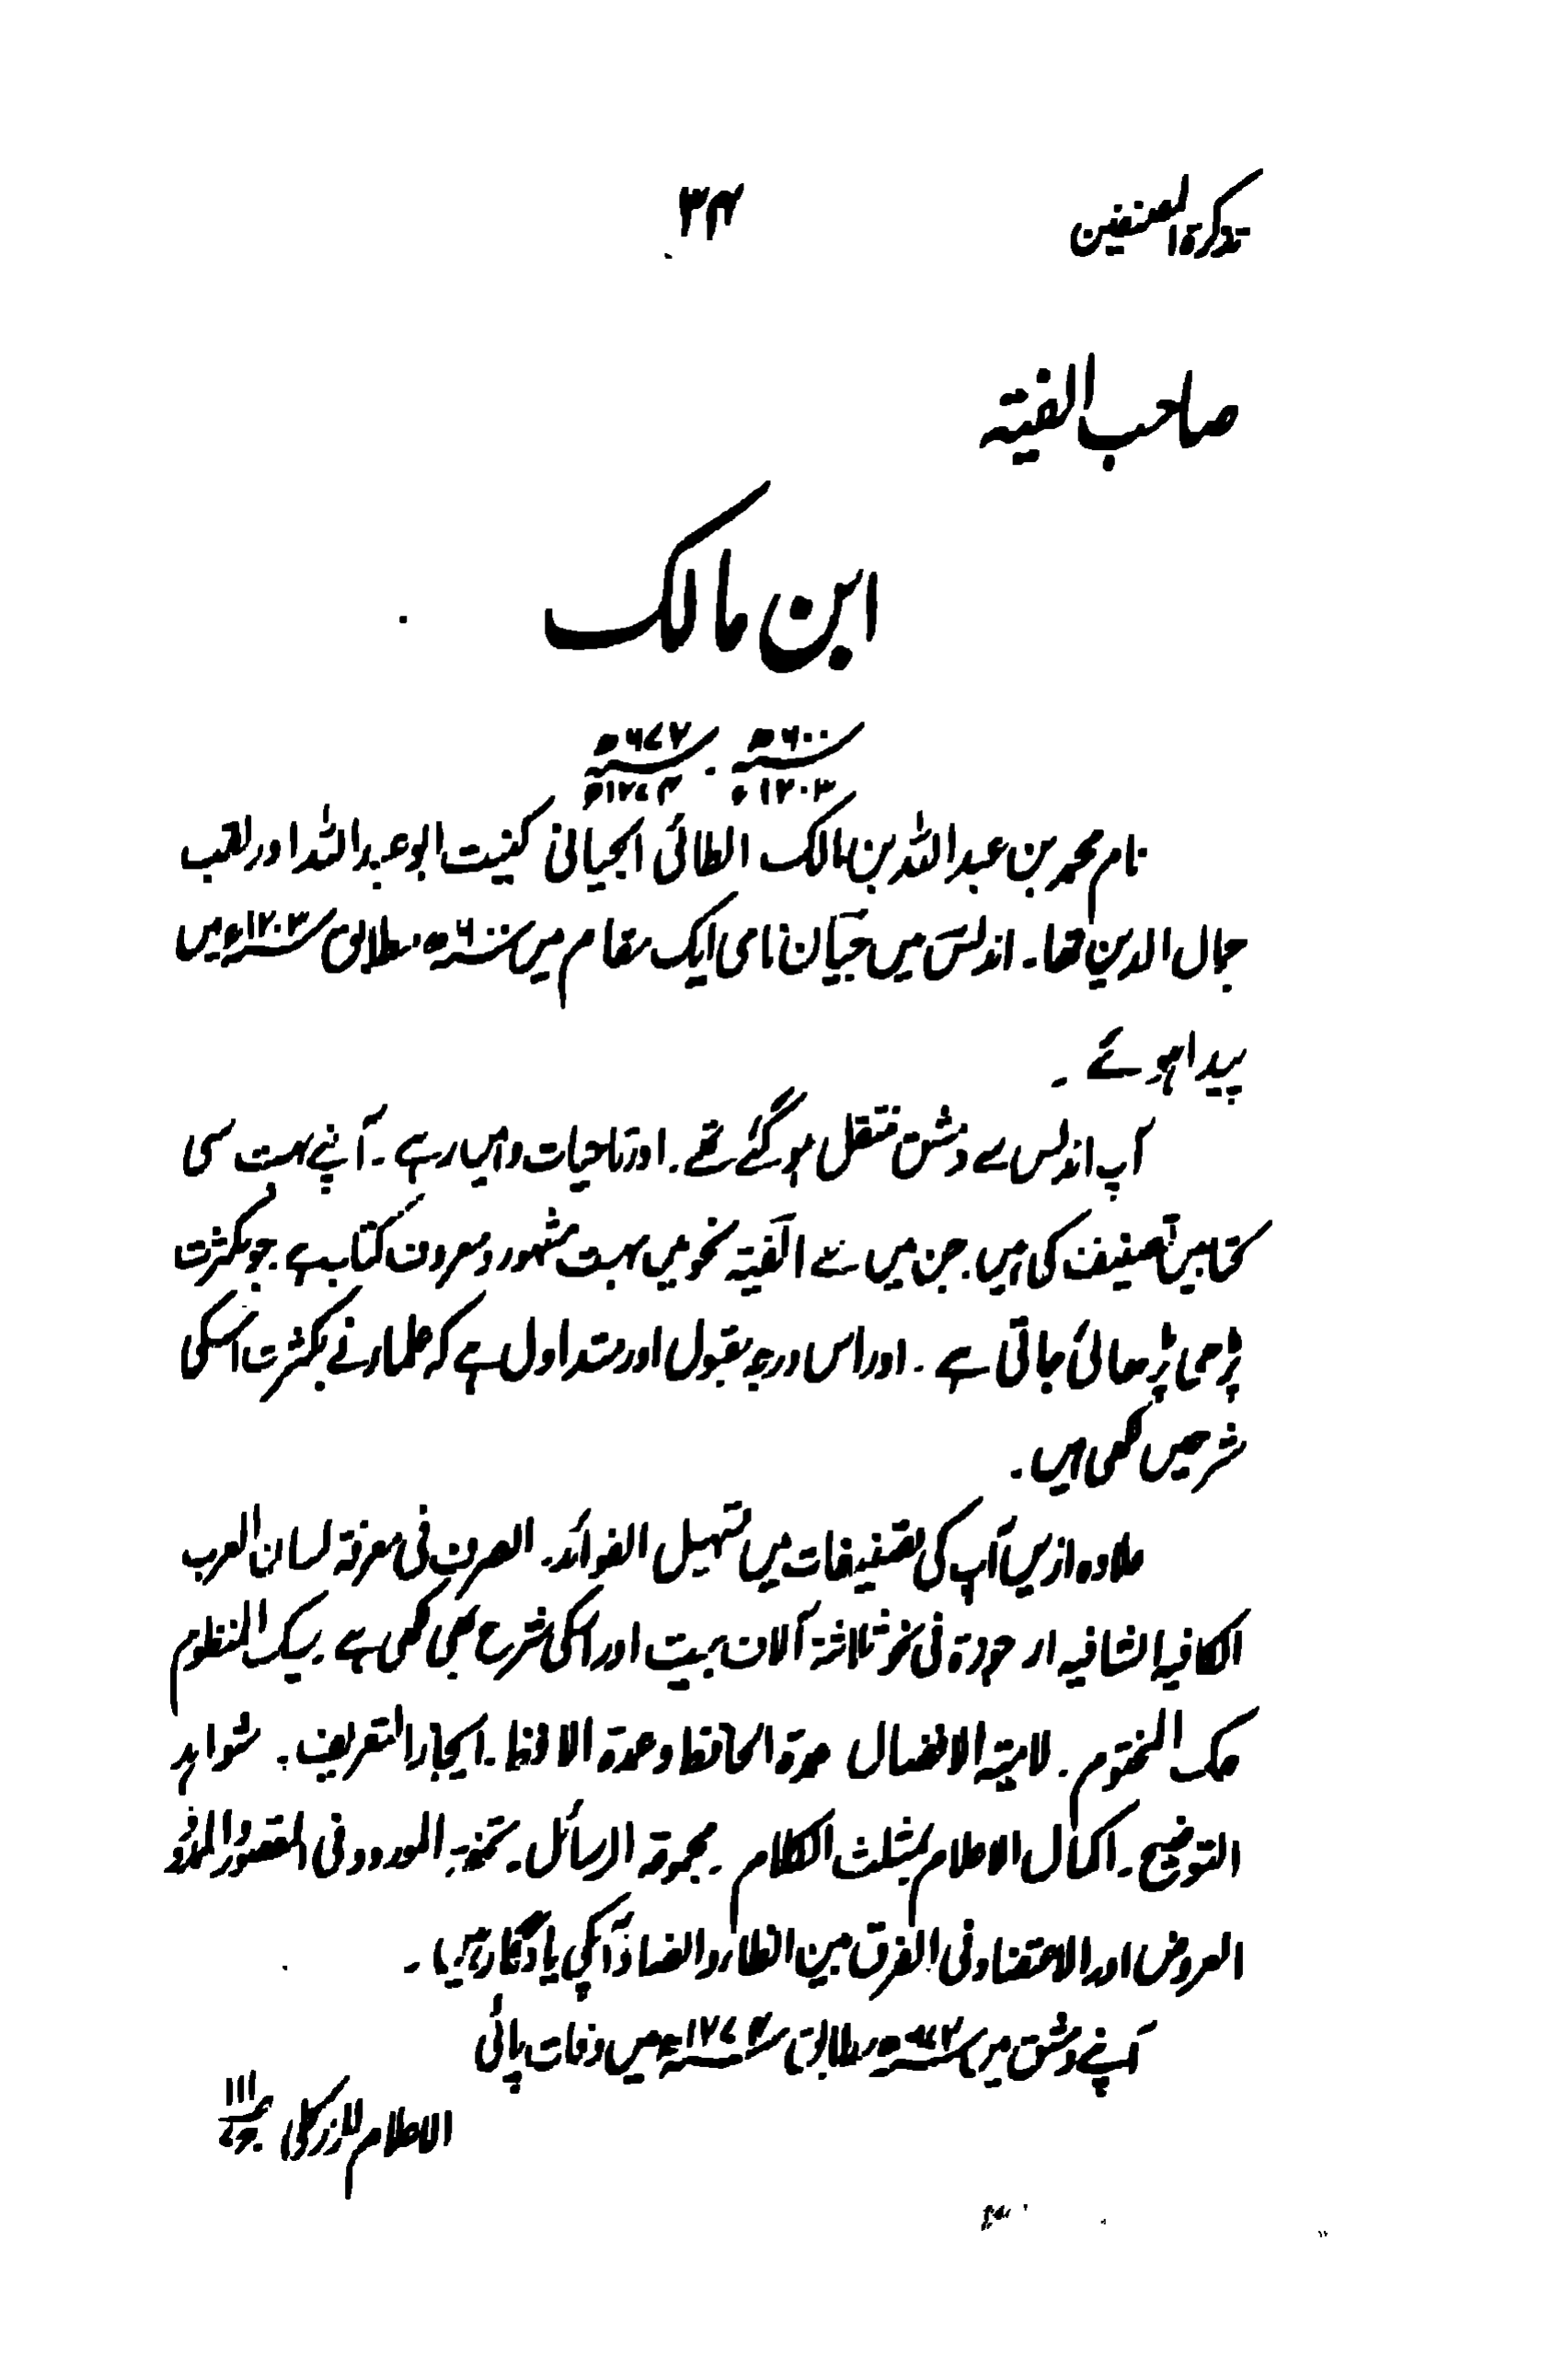 تذکرۃ المصنفین
۳۴
صاحب الفیتہ
ابن مالک
۶۰۰ھ ۔ ۶۷۲ھ
۱۲۰۳ء ۱۲۷۴ء
نام محمد بن عبداللہ بن مالک الطائی الجیانی کنیت ابو عبداللہ اور لقب
جمال الدین تھا۔ اندلس میں جیّان نامی ایک مقام میں ۶۰۰ھ مطابق ۱۲۰۳ء میں
پیدا ہوئے۔
آپ اندلس سے دمشق منتقل ہو گئے تھے۔ اور تاحیات وہیں رہے۔ آپنے بہت سی
کتابیں تصنیف کی ہیں۔ جن میں سے الفیتہ نحو میں بہت مشہور و معروف کتاب ہے جو بکثرت
پڑھی پڑھائی جاتی ہے۔ اور اس درجہ مقبول اور متداول ہے کہ علماء نے بکثرت اسکی
شرحیں لکھی ہیں۔
علاوہ ازیں آپ کی تصنیفات میں تسہیل الفوائد۔ الصرف فی معرفۃ لسان العرب
الکافیہ الشافیہ ارجوزۃ فی نحو ثلاثۃ آلاف بیت اور اسکی شرح بھی لکھی ہے۔ سبک المنظوم
فک المختوم۔ لامیتہ الافعال عدۃ الحافظ وعمدۃ الافظ۔ ایجاز التعریف۔ شواہد
التوضیح۔ اکمال الاعلام بمثلث الکلام۔ مجموعۃ الرسائل۔ تحفۃ المودود فی المقصور والممدود
العروض اور الاعتضاد فی الفرق بین الظاء والضاد آپکی یادگار ہیں۔
آپنے دمشق میں ۶۷۲ھ مطابق ۱۲۷۴ء میں وفات پائی
الاعلام للزرکلی ۱۱۱